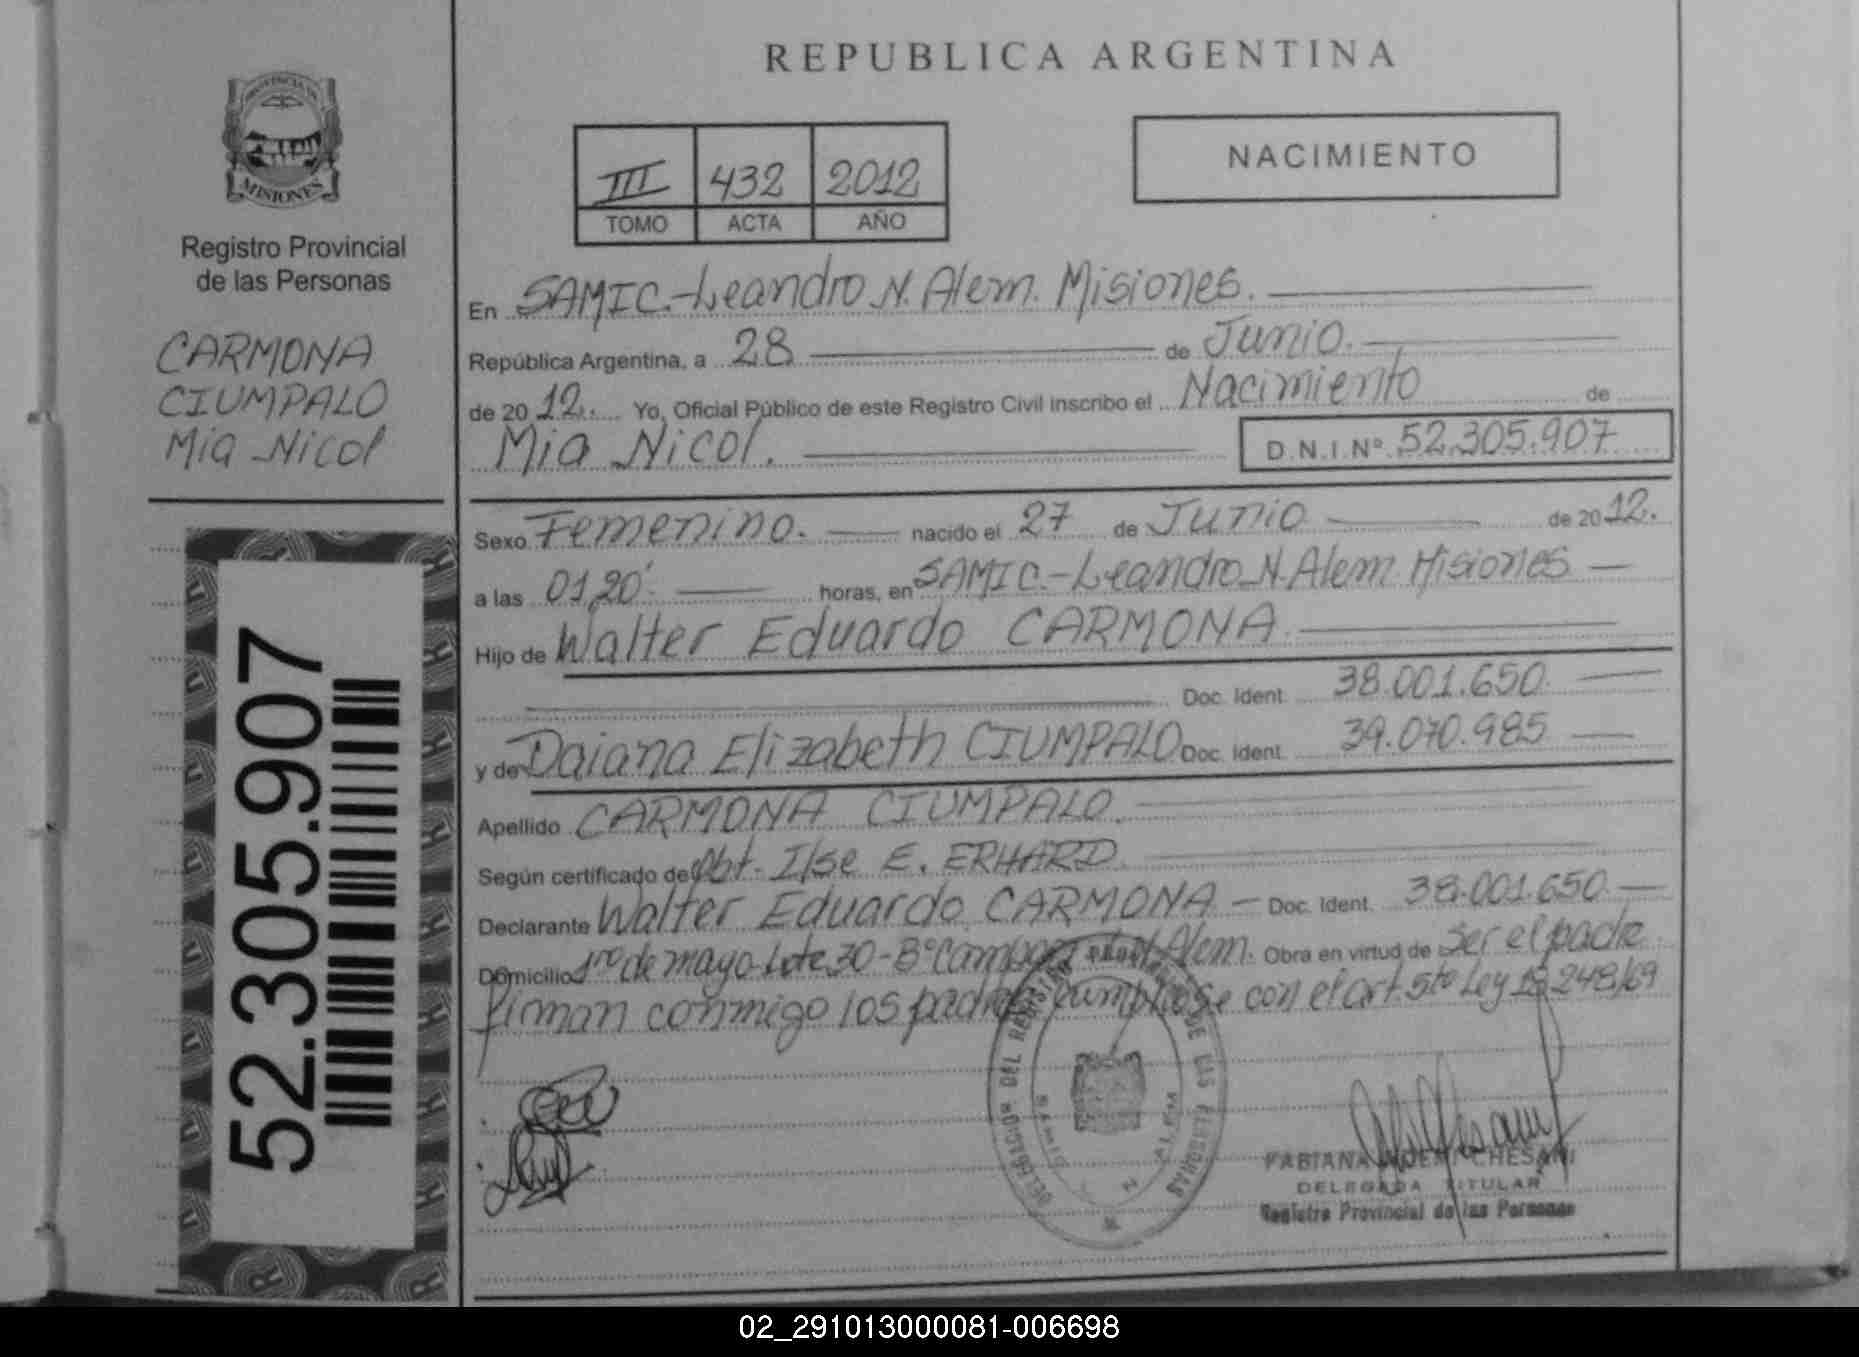 REPUBLICA ARGENTINA
PROVINCIA DE
MISIONES
Registro Provincial
de las Personas
CARMONA
CIUMPALO
Mia Nicol
52.305.907
III 432 2012
TOMO ACTA AÑO
NACIMIENTO
En SAMIC.-Leandro N. Alem. Misiones.
República Argentina, a 28 de Junio.
de 2012. Yo, Oficial Público de este Registro Civil inscribo el Nacimiento de
Mia Nicol. D.N.I.Nº 52.305.907
Sexo Femenino. nacido el 27 de Junio de 2012.
a las 01,20' horas, en SAMIC.-Leandro N. Alem. Misiones
Hijo de Walter Eduardo CARMONA
Doc. Ident. 38.001.650.
y de Daiana Elizabeth CIUMPALO Doc. Ident. 39.070.985
Apellido CARMONA CIUMPALO.
Según certificado de Obt. Ilse E. ERHARD
Declarante Walter Eduardo CARMONA - Doc. Ident. 38.001.650.
Domicilio 1ro de mayo Lote 30 - Bº N. Alem. Obra en virtud de Ser el padre
firman conmigo los padres cumpliose con el art. 5to Ley 18.248/69
DELEGACION DEL REGISTRO PROVINCIAL DE LAS PERSONAS
SAMIC
N. ALEM
FABIANA NOEMI CHESANI
DELEGADA TITULAR
Registro Provincial de las Personas
02_291013000081-006698